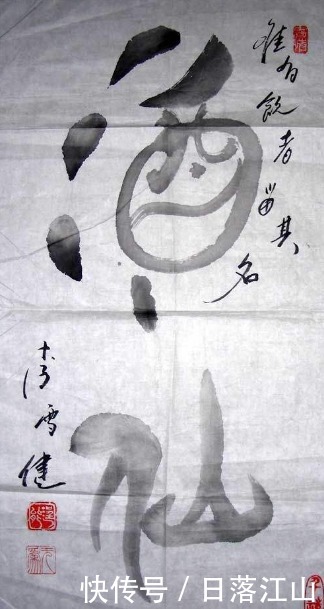 惟有飲者留其名
酒仙
李雪健
快传号 / 日落江山